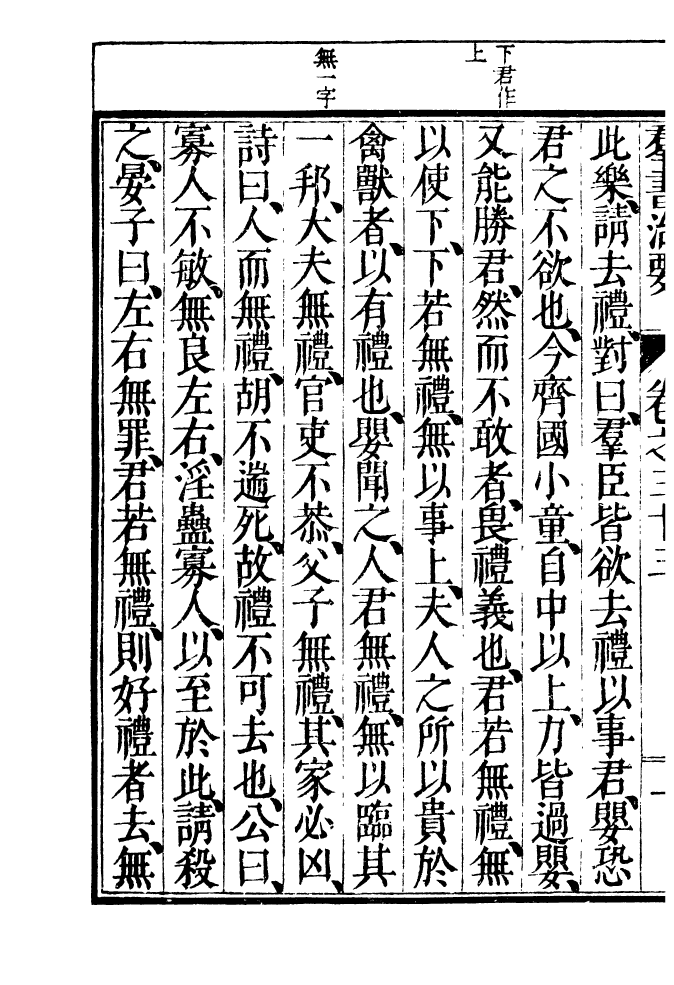 下君作
上
無一字
羣書治要 卷之三十三 一
此樂、請去禮、對曰、羣臣皆欲去禮以事君、嬰恐
君之不欲也、今齊國小童、自中以上、力皆過嬰、
又能勝君、然而不敢者、畏禮義也、君若無禮、無
以使下、下若無禮、無以事上、夫人之所以貴於
禽獸者、以有禮也、嬰聞之、人君無禮、無以臨其
一邦、大夫無禮、官吏不恭、父子無禮、其家必凶、
詩曰、人而無禮、胡不遄死、故禮不可去也、公曰、
寡人不敏、無良左右、淫蠱寡人、以至於此、請殺
之、晏子曰、左右無罪、君若無禮、則好禮者去、無